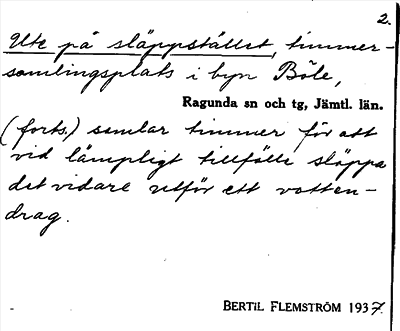 2.
Ute på släppstället, timmer-
samlingsplats i byn Böle,
Ragunda sn och tg, Jämtl. län.
(forts.) samlar timmer för att
vid lämpligt tillfälle släppa
det vidare utför ett vatten-
drag.
BERTIL FLEMSTRÖM 1937.